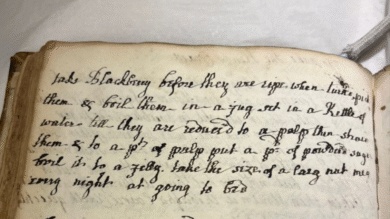 take Blackbery before they are ripe when turke pick
them & boil them in a jug set in a Kettle of
water till they are reduced to a palp then straine
them & to a pt of pulp put a pd of powdred suger
boil it to a Jelly take the size of a larg nut meg
every night at going to bed